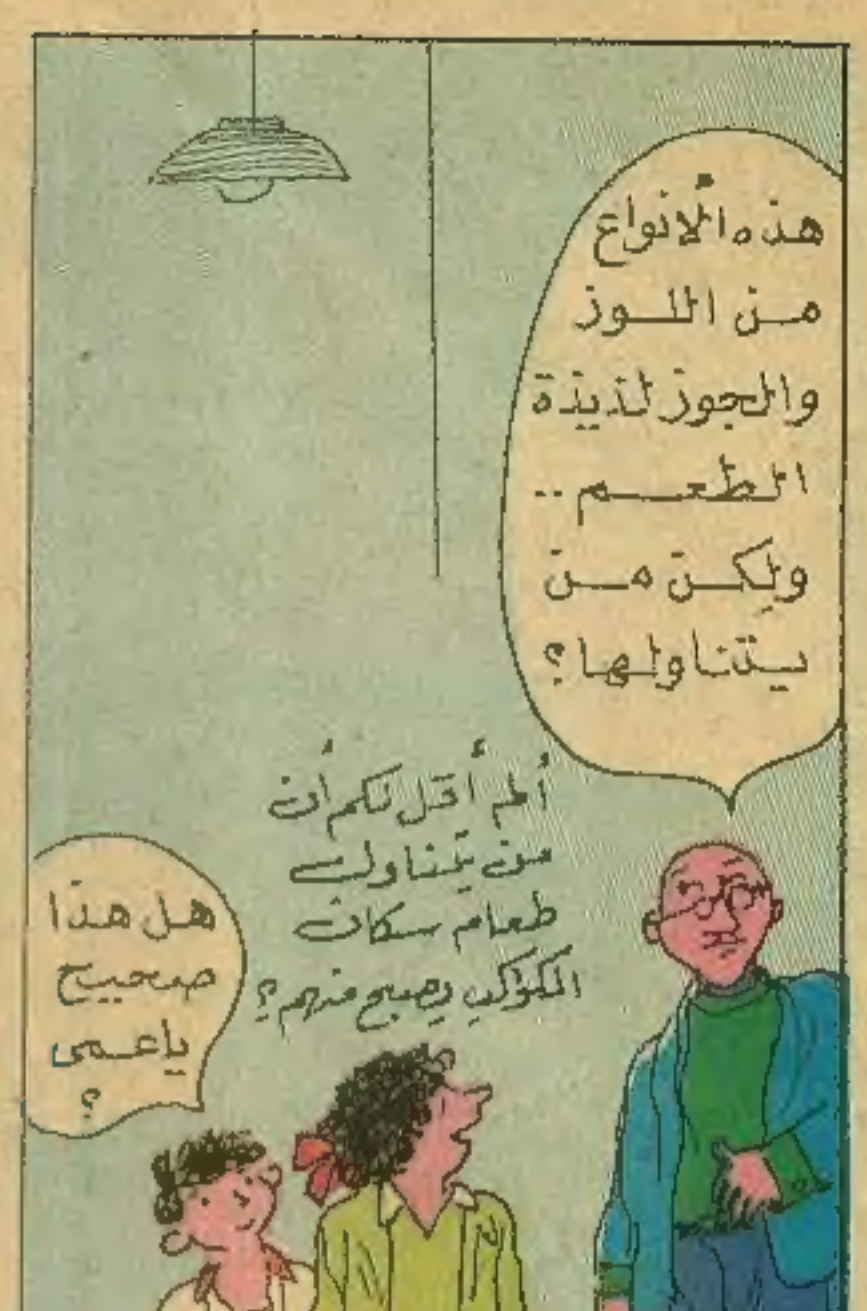 هذه الأنواع
من اللوز
والجوز لذيذة
الطعم ..
ولكن من
يتناولها؟
ألم أقل لكم أن
من يتناول
طعام سكان
الكوكب يصبح منهم؟
هل هذا
صحيح
ياعمى
؟